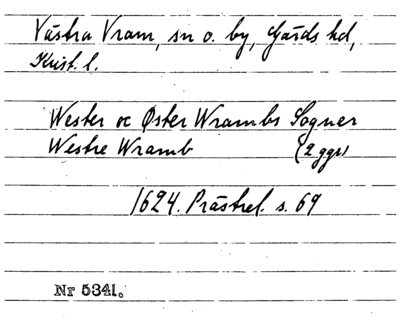 Västra Vram, sn o. by, Gärds hd,
Krist. l.
Wester oc Øster Wrambs Sogner
Westre Wramb (2 ggr)
1624. Prästrel. s. 69
Nr 5341.